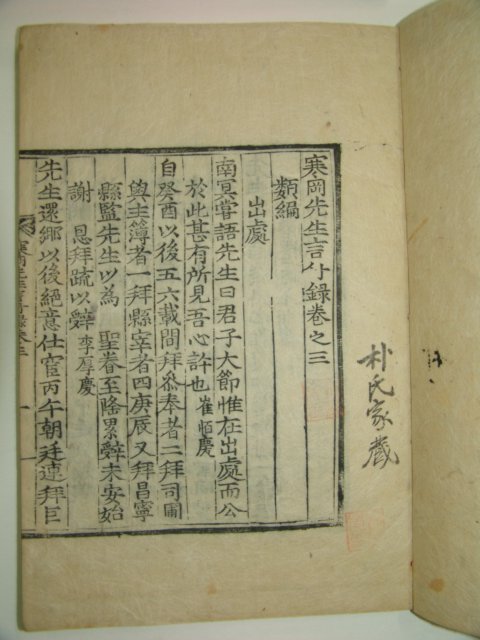 朴氏家藏
寒岡先生言行録卷之三
類編
出處
南冥嘗語先生曰君子大節惟在出處而公
於此甚有所見吾心許也 崔恒慶
自癸酉以後五六載間拜叅奉者二拜司圃
與主簿者一拜縣宰者四庚辰又拜昌寧
縣監先生以為 聖眷至隆累辭未安始
謝 恩拜疏以辭 李厚慶
先生還鄉以後絕意仕宦丙午朝廷連拜巨
寒岡先生言行録卷三 一